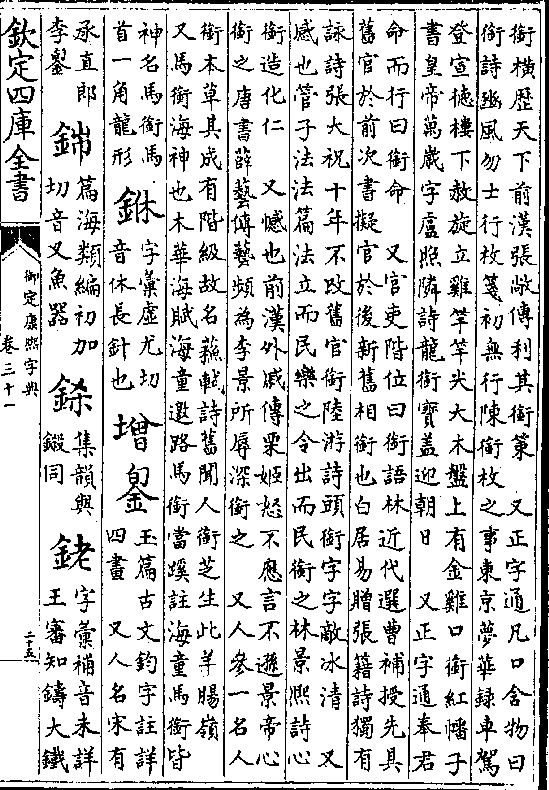 銜橫歴天下前漢張敞傳利其銜䇿　又正字通凡口含物曰
銜詩豳風勿士行枚箋初無行陳銜枚之事東京夢華録車駕
登宣徳樓下赦旋立雞竿竿尖大木盤上有金雞口銜紅幡子
書皇帝萬歳字盧照隣詩龍銜寶盖迎朝日　又正字通奉君
命而行曰銜命　又官吏階位曰銜語林近代選曹補授先具
舊官於前次書擬官於後新舊相銜也白居易贈張籍詩獨有
詠詩張太祝十年不改舊官銜陸游詩頭銜字字敵冰清　又
感也管子法法篇法立而民樂之令出而民銜之林景熙詩心
銜造化仁　又憾也前漢外戚傳栗姬怒不應言不遜景帝心
銜之唐書薛藝傳藝頻為李景所辱深銜之　又人參一名人
銜本草其成有階級故名蘓軾詩舊聞人銜芝生此羊腸嶺
又馬銜海神也木華海賦海童邀路馬銜當蹊註海童馬銜皆
神名馬銜馬首一角龍形
銝
字彚虛尤切音休長針也
增
鋆
玉篇古文鈞字註詳四畫　又人名宋有承直郎李鋆
鍗
篇海類編初加切音叉魚器
鎩
集韻與鎩同
銠
字彚補音未詳王審知鑄大鐵
欽定四庫全書
御定康熙字典
卷三十一
二十五